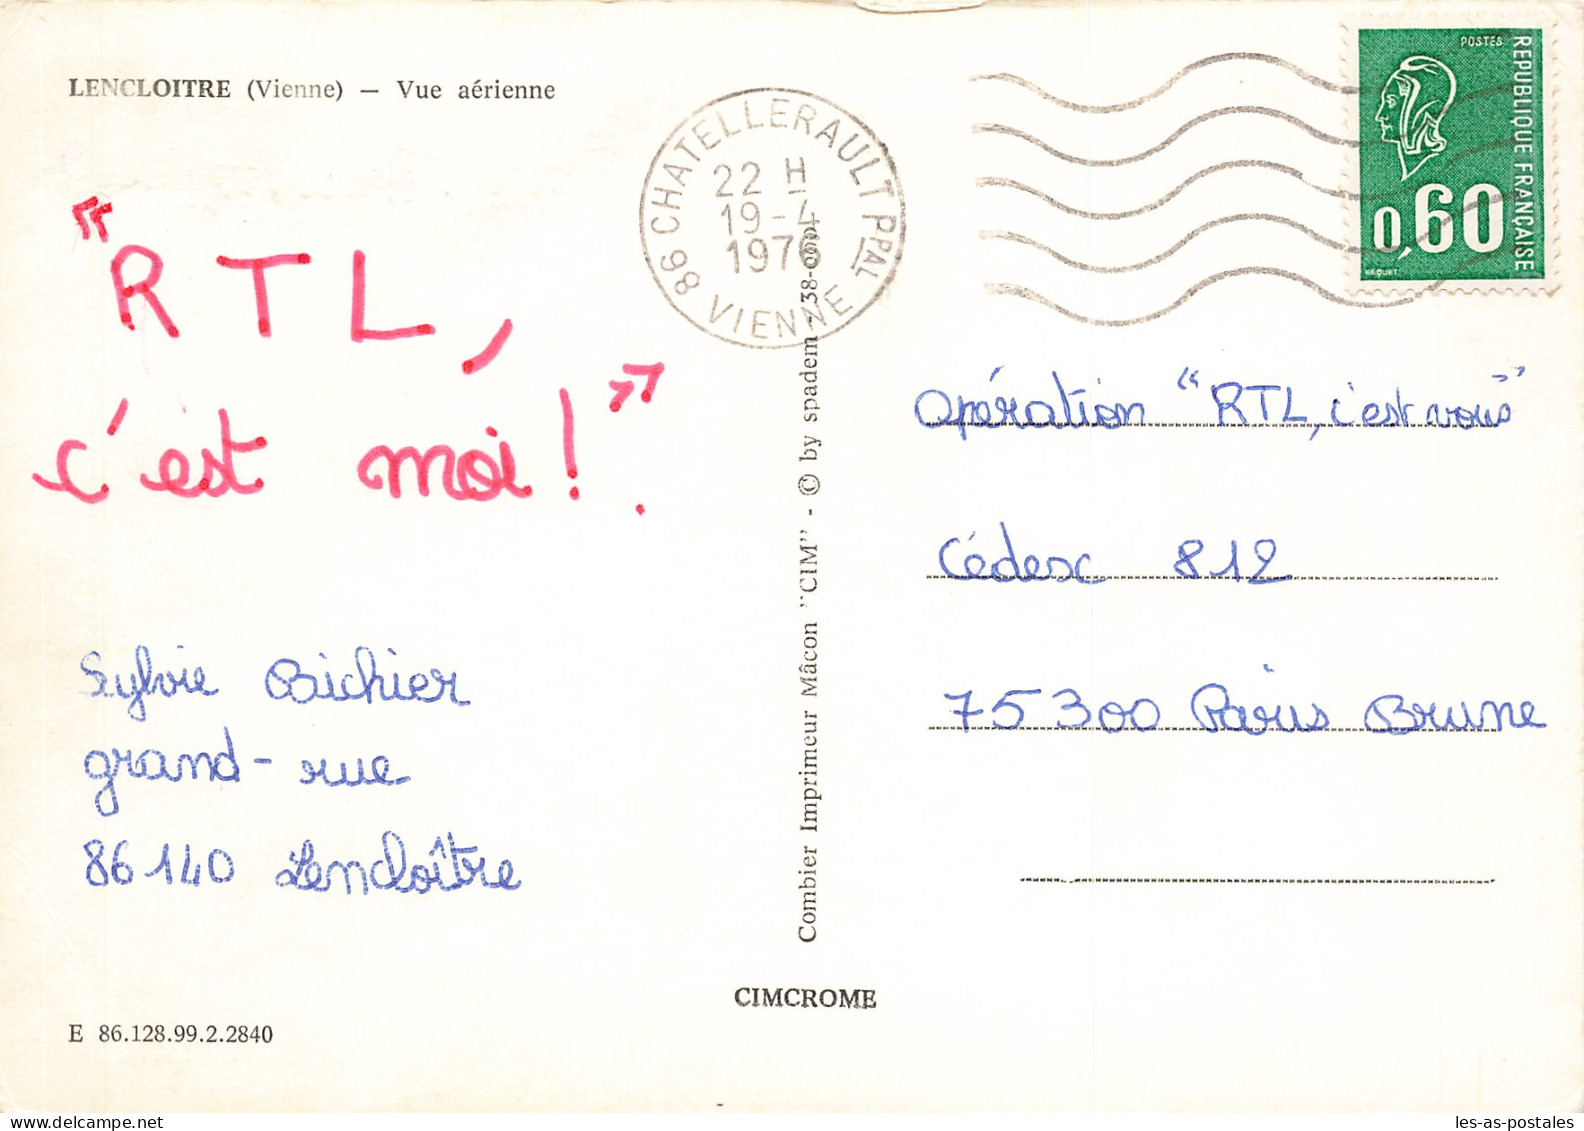 LENCLOITRE (Vienne) — Vue aérienne
"RTL,
c'est moi!".
Sylvie Bichier
grand-rue
86140 Lencloître
E 86.128.99.2.2840
86 CHATELLERAULT PPAL
22 H
19-4
1976
VIENNE
Combier Imprimeur Mâcon "CIM" - © by spadem - 38-000
CIMCROME
POSTES
REPUBLIQUE FRANÇAISE
0,60
BEQUET
Opération "RTL, c'est vous"
Cédex 812
75300 Paris Brune
les-as-postales